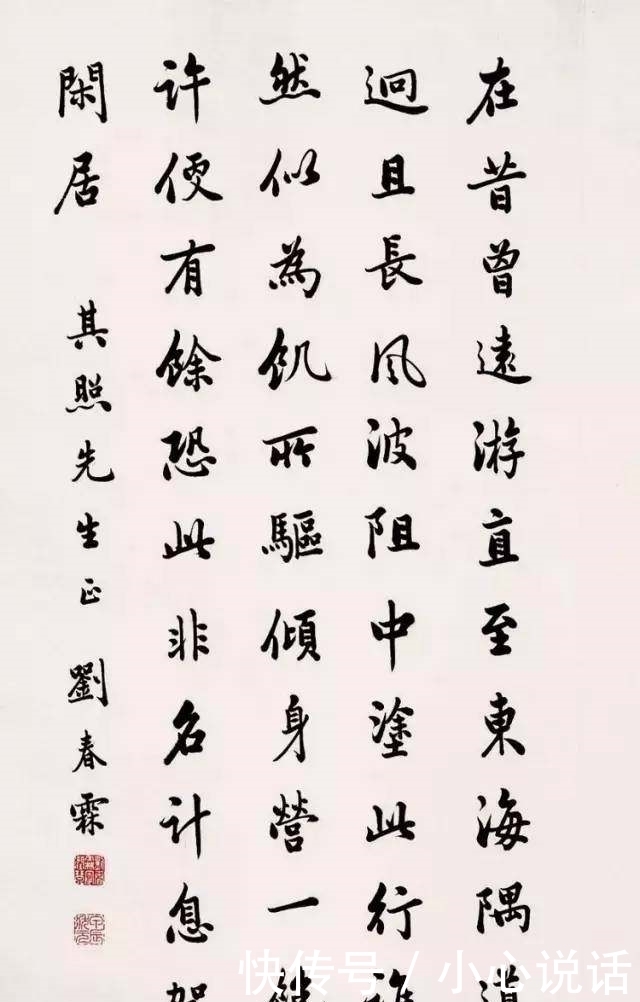 在昔曾遠游直至東海隅
迥且長風波阻中塗此行
然似為飢所驅傾身營一
許便有餘恐此非名計息
閑居 其照先生正 劉春霖
快传号 / 小心说话